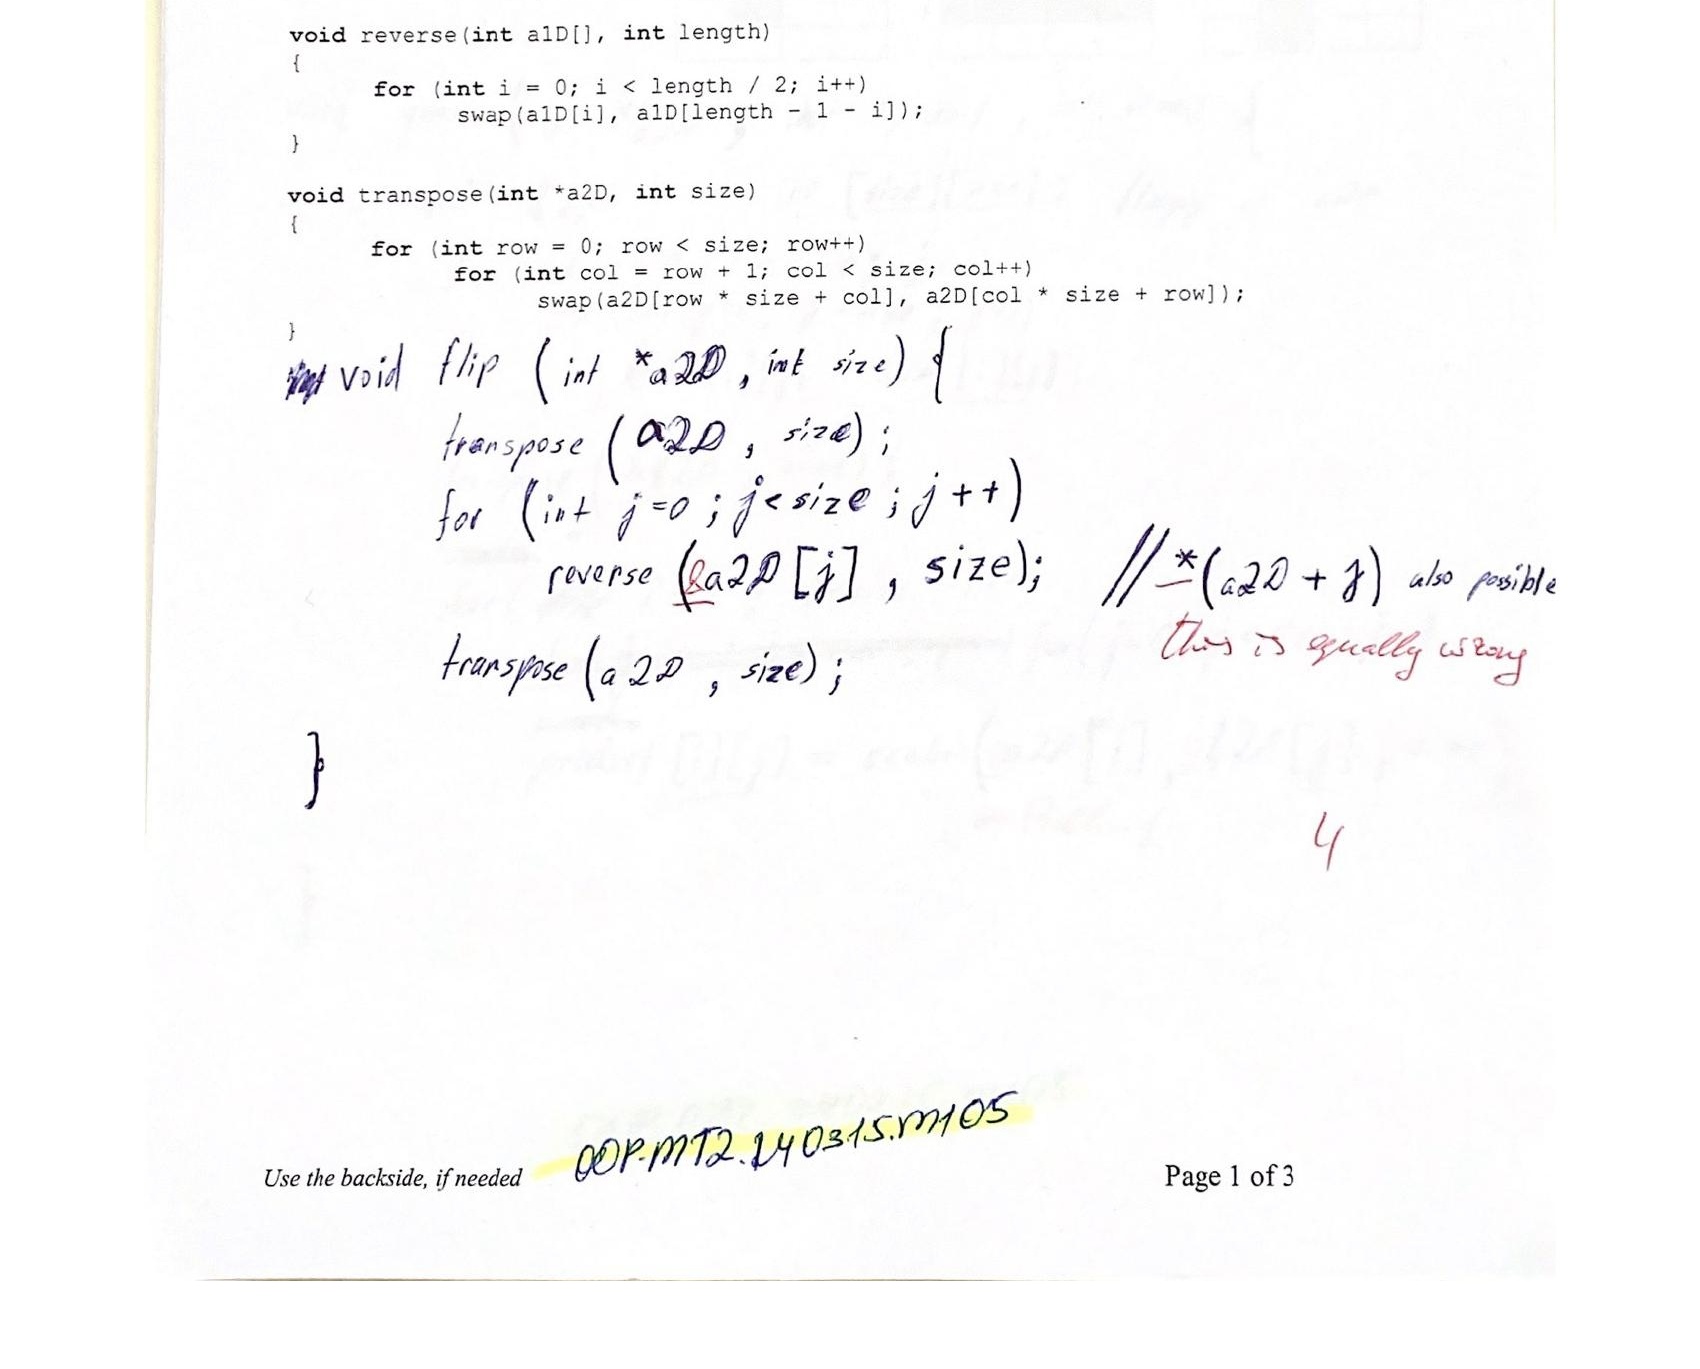 void reverse(int a1D[], int length)
{
for (int i = 0; i < length / 2; i++)
swap(a1D[i], a1D[length - 1 - i]);
}
void transpose(int *a2D, int size)
{
for (int row = 0; row < size; row++)
for (int col = row + 1; col < size; col++)
swap(a2D[row * size + col], a2D[col * size + row]);
}
void flip (int *a2D, int size) {
transpose (a2D, size);
for (int j=0; j<size; j++)
reverse (&a2D[j], size); // *(a2D + j) also possible
this is equally wrong
transpose (a2D, size);
}
4
OOP.MT2.240315.M105
Use the backside, if needed Page 1 of 3